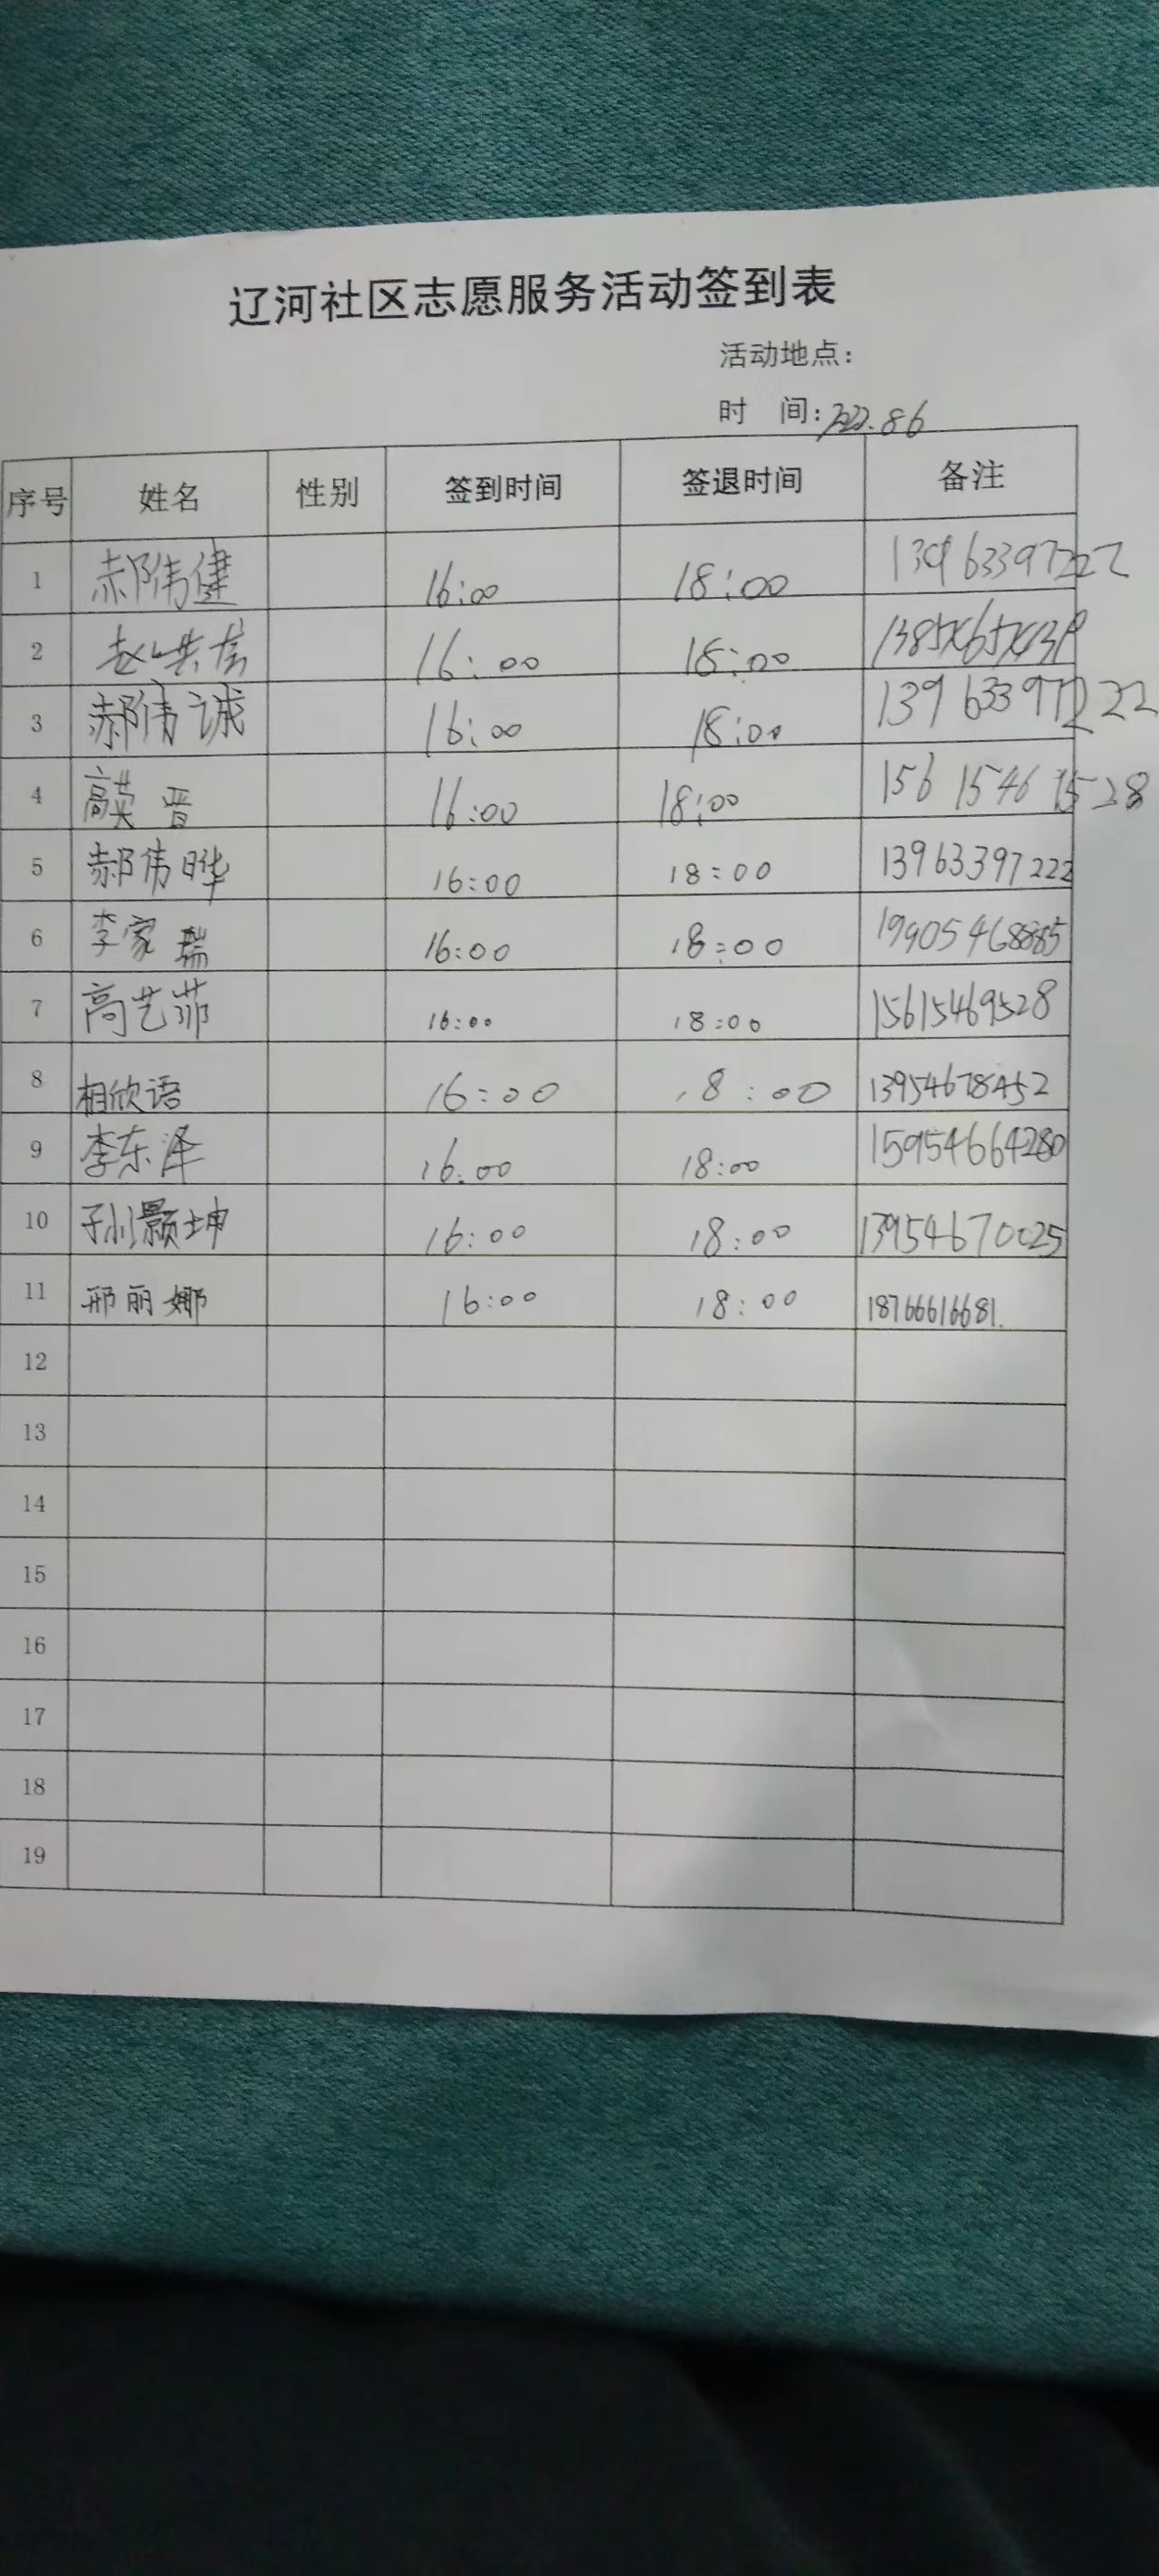 辽河社区志愿服务活动签到表
活动地点：
时 间：2022.8.6
序号 姓名 性别 签到时间 签退时间 备注
1 郝伟健 16:00 18:00 13963397222
2 赵 16:00 18:00
3 郝伟诚 16:00 18:00 13963397222
4 高英晋 16:00 18:00 156 1546 28
5 郝伟晔 16:00 18:00 13963397222
6 李家瑞 16:00 18:00 19905468885
7 高艺菲 16:00 18:00 15615469528
8 相欣语 16:00 18:00 13954678452
9 李东泽 16:00 18:00 15954664280
10 孙颢坤 16:00 18:00 13954670025
11 邢丽娜 16:00 18:00 18766616681.
12
13
14
15
16
17
18
19